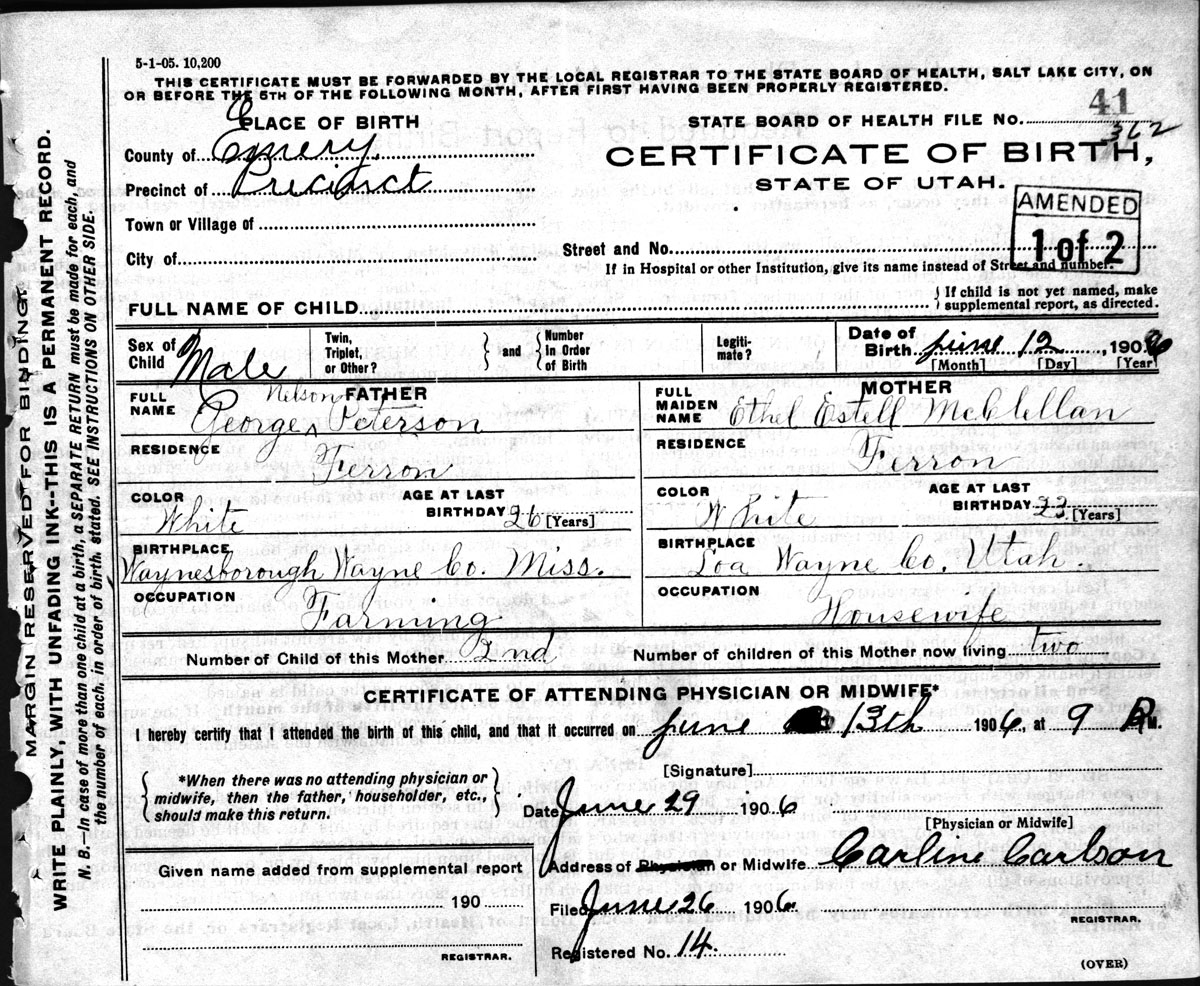 5-1-05. 10,200
THIS CERTIFICATE MUST BE FORWARDED BY THE LOCAL REGISTRAR TO THE STATE BOARD OF HEALTH, SALT LAKE CITY, ON
OR BEFORE THE 5TH OF THE FOLLOWING MONTH, AFTER FIRST HAVING BEEN PROPERLY REGISTERED.
41
PLACE OF BIRTH
STATE BOARD OF HEALTH FILE NO. 362
County of Emery
CERTIFICATE OF BIRTH,
Precinct of Precinct
STATE OF UTAH.
AMENDED
1 of 2
Town or Village of
City of
Street and No.
If in Hospital or other Institution, give its name instead of Street and number.
FULL NAME OF CHILD
{ If child is not yet named, make
supplemental report, as directed.
Sex of Child Male
Twin, Triplet, or Other?
} and {
Number In Order of Birth
Legiti-mate?
Date of Birth June 12, 1906
[Month] [Day] [Year]
FATHER
FULL NAME George Nelson Peterson
RESIDENCE Ferron
COLOR White
AGE AT LAST BIRTHDAY 26 [Years]
BIRTHPLACE Waynesborough Wayne Co. Miss.
OCCUPATION Farming
MOTHER
FULL MAIDEN NAME Ethel Estell McClellan
RESIDENCE Ferron
COLOR White
AGE AT LAST BIRTHDAY 23 [Years]
BIRTHPLACE Loa Wayne Co. Utah.
OCCUPATION Housewife
Number of Child of this Mother 2nd
Number of children of this Mother now living two
CERTIFICATE OF ATTENDING PHYSICIAN OR MIDWIFE*
I hereby certify that I attended the birth of this child, and that it occurred on June 13th 1906, at 9 A M.
{ *When there was no attending physician or
midwife, then the father, householder, etc.,
should make this return. }
[Signature]
Date June 29 1906
[Physician or Midwife]
Address of Physician or Midwife Carline Carlson
Given name added from supplemental report
190
REGISTRAR.
Filed June 26 1906
REGISTRAR.
Registered No. 14
(OVER)
MARGIN RESERVED FOR BINDING.
WRITE PLAINLY, WITH UNFADING INK--THIS IS A PERMANENT RECORD.
N. B.--In case of more than one child at a birth, a SEPARATE RETURN must be made for each, and
the number of each, in order of birth, stated. SEE INSTRUCTIONS ON OTHER SIDE.